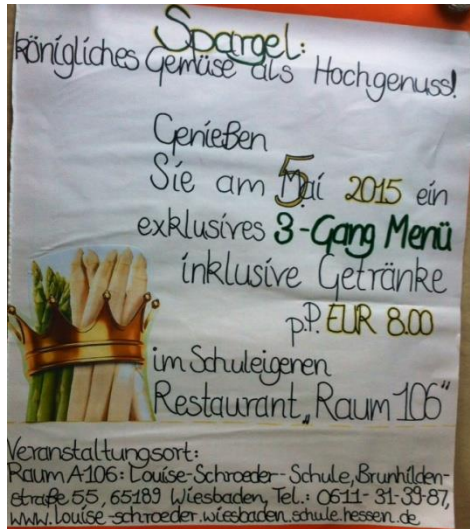 Spargel:
königliches Gemüse als Hochgenuss!
Genießen
Sie am 5 Mai 2015 ein
exklusives 3-Gang Menü
inklusive Getränke
p.P. EUR 8.00
im Schuleigenen
Restaurant „Raum 106“
Veranstaltungsort:
Raum A106: Louise-Schroeder-Schule, Brunhilden-
straße 55, 65189 Wiesbaden, Tel.: 0611-31-39-87,
www.louise-schroeder.wiesbaden.schule.hessen.de